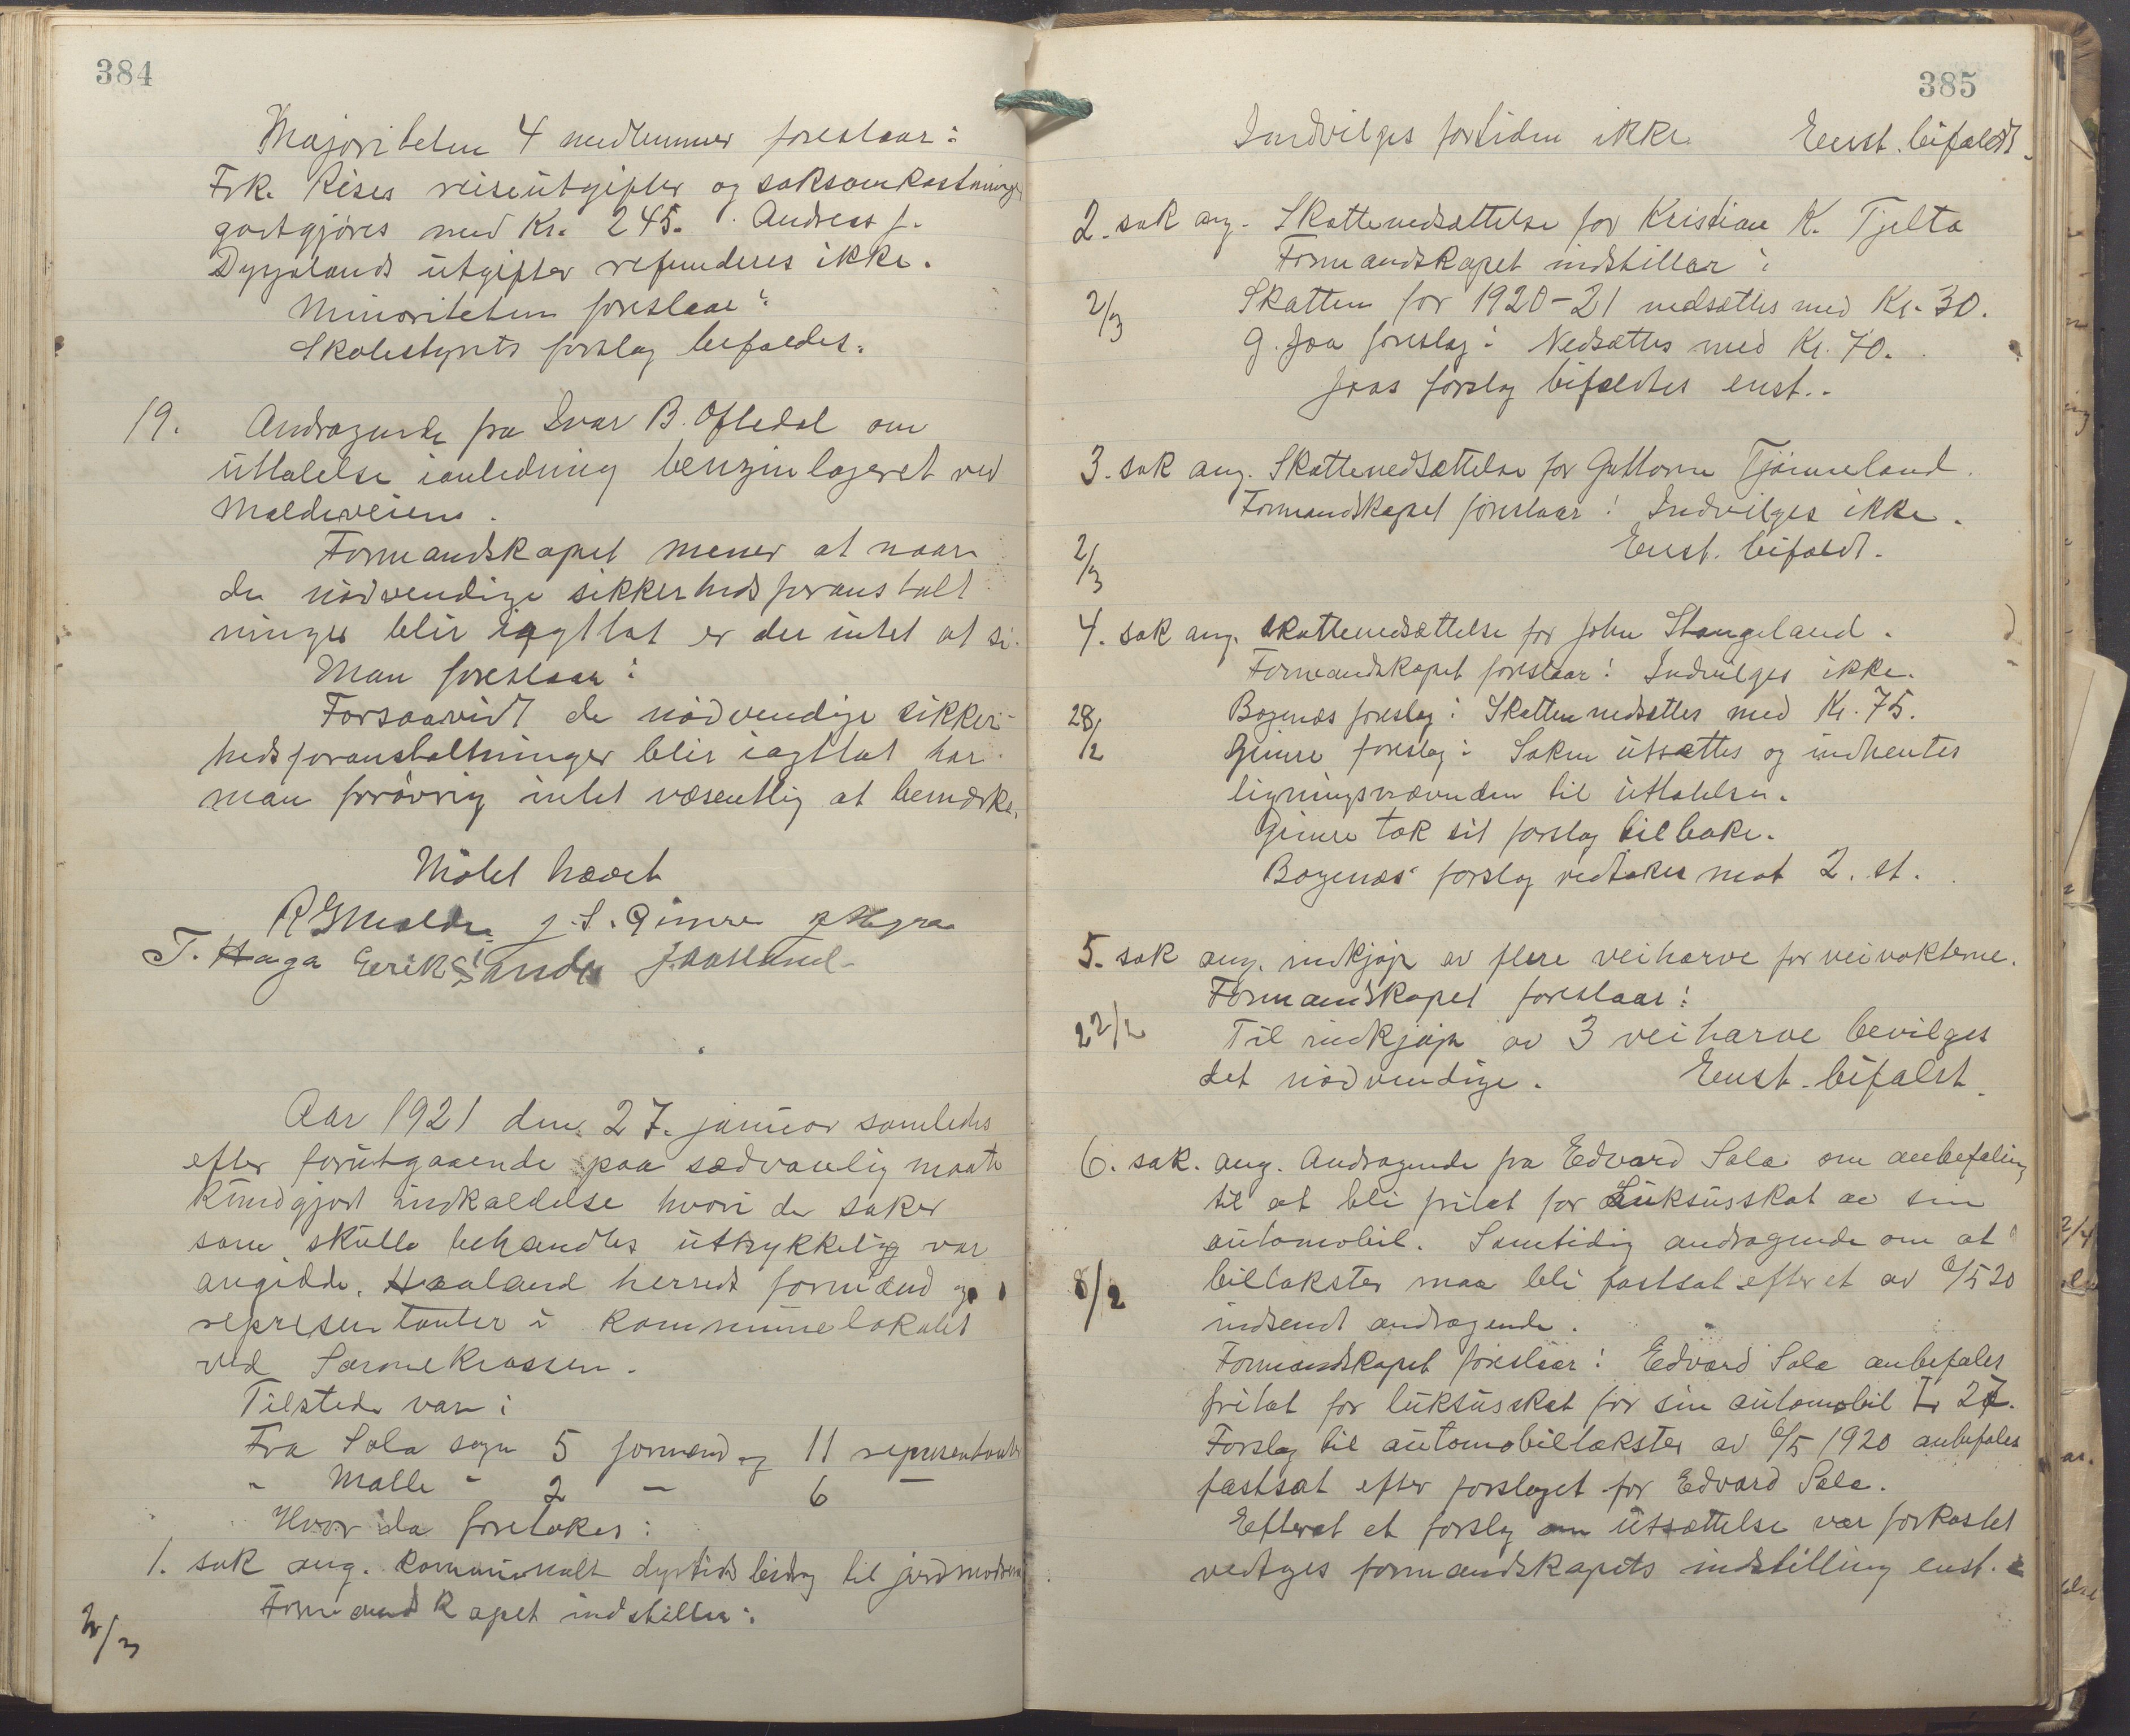 384
Majoriteten 4 medlemmer foreslaar:
Frk. Rises reiseutgifter og saksomkostninger
godtgjøres med Kr. 245. Andreas J.
Dysjalands utgifter refunderes ikke.
Minoriteten foreslaar:
Skolestyrets forslag bifaldes.
19. Andragende fra Ivar B. Oftedal om
uttalelse ianledning benzinlageret ved
Maldeveien.
Formandskapet mener at naar
de nødvendige sikkerhedsforanstalt
ninger blir iagttat er der intet at si.
Man foreslaar:
Forsaavidt de nødvendige sikker-
hedsforanstaltninger blir iagttat har
man forøvrig intet væsentlig at bemerke.
Møtet hævet
R G Malde J. S. Gimre
T. Haga Eerik Sande J Aasland
Aar 1921 den 27. januar samledes
efter forutgaaende paa sædvanlig maate
kundgjort indkaldelse hvori de saker
som skulle behandles uttrykkelig var
angitde. Haaland herreds formænd og
representanter i kommunelokalet
ved Sømmekrossen.
Tilstede var:
Fra Sola sogn 5 formænd og 11 representanter
" Malle " 2 — 6 —
Hvor da foretokes:
1. sak ang. kommunalt dyrtidsbidrag til jordmødrene
Formandskapet indstiller:
2/3
385
Indvilges fortiden ikke. Enst. bifaldt.
2. sak ang. Skattenedsættelse for Kristian K. Tjelta
Formandskapet indstiller:
2/3 Skatten for 1920-21 nedsættes med Kr. 30.
G. Joa foreslog: Nedsættes med Kr. 70.
Joas forslag bifaldtes enst..
3. sak ang. Skattenedsættelse for Guttorm Tjømeland.
Formandskapet foreslaar: Indvilges ikke.
2/3 Enst. bifaldt.
4. sak ang. skattenedsættelse for John Stangeland.
Formandskapet foreslaar: Indvilges ikke.
28/2 Bøgenæs foreslog: Skatten nedsættes med Kr. 75.
Gimre foreslog: Saken utsættes og indhentes
ligningsnævnden til uttalelse.
Gimre tok sit forslag tilbake.
Bøgenæs' forslag vedtokes mot 2. st.
5. sak ang. indkjøp av flere veiharve for veivokterne.
Formandskapet foreslaar:
22/2 Til indkjøp av 3 veiharve bevilges
det nødvendige. Enst. bifalst.
6. sak. ang. Andragende fra Edvard Sola om anbefaling
til at bli fritat for Luksusskat av sin
automobil. Samtidig andragende om at
8/2 biltakster maa bli fastsat efter et av 6/5 20
indsendt andragende.
Formandskapet foreslaar: Edvard Sola anbefales
fritat for luksusskat for sin automobil L 27.
Forslag til automobiltakster av 6/5 1920 anbefales
fastsat efter forslaget for Edvard Sola.
Efterat et forslag om utsættelse var forkastet
vedtages formandskapets indstilling enst.